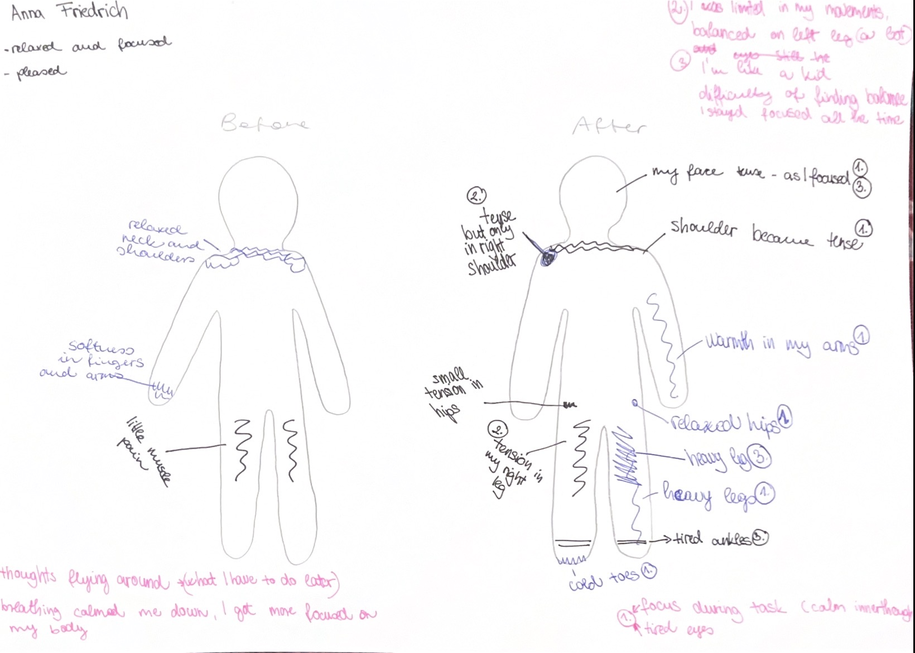 Anna Friedrich
- relaxed and focused
- pleased
2. I was limited in my movements,
balanced on left leg (a lot)
3 I'm like a kid
difficulty of finding balance
I stayed focused all the time
Before
relaxed
neck and
shoulders
softness
in fingers
and arms
little muscle
pain
thoughts flying around (what I have to do later)
breathing calmed me down, I got more focused on
my body
After
my face tense - as I focused 1.
3.
2.
tense
but only
in right
shoulder
shoulder became tense 1.
warmth in my arms 1
small
tension in
hips
relaxed hips 1
2.
tension in
my right
leg
heavy leg 3
heavy legs 1.
tired ankles 3.
cold toes 1.
1. focus during task (calm inner
tired eyes